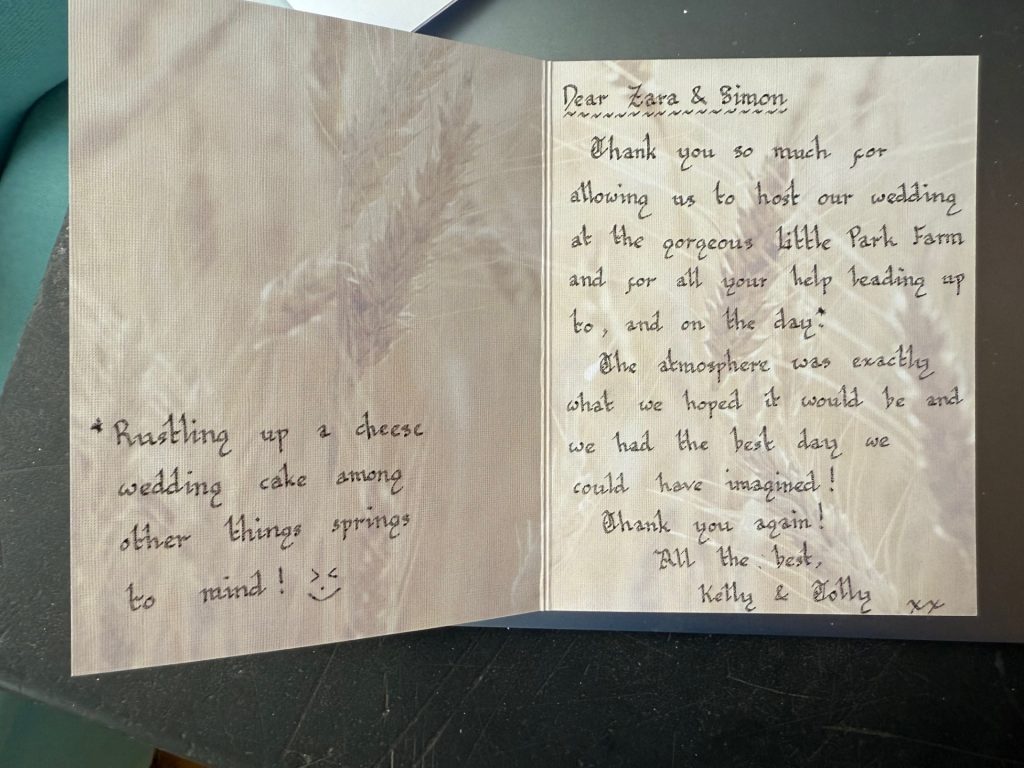 * Rustling up a cheese
wedding cake among
other things springs
to mind! >:<
Dear Zara & Simon
Thank you so much for
allowing us to host our wedding
at the gorgeous Little Park Farm
and for all your help leading up
to, and on the day.*
The atmosphere was exactly
what we hoped it would be and
we had the best day we
could have imagined!
Thank you again!
All the best,
Kelly & Tolly xx